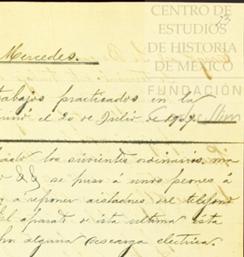 CENTRO DE
ESTUDIOS
DE HISTORIA
DE MÉXICO
FUNDACIÓN
23
Mercedes.
trabajos practicados en la
el 20 de Julio de
los sirvientes ordinarios,
se puso á unos peones á
á reponer aisladores del teléfono
El aparato de ésta ultima está
alguna descarga electrica